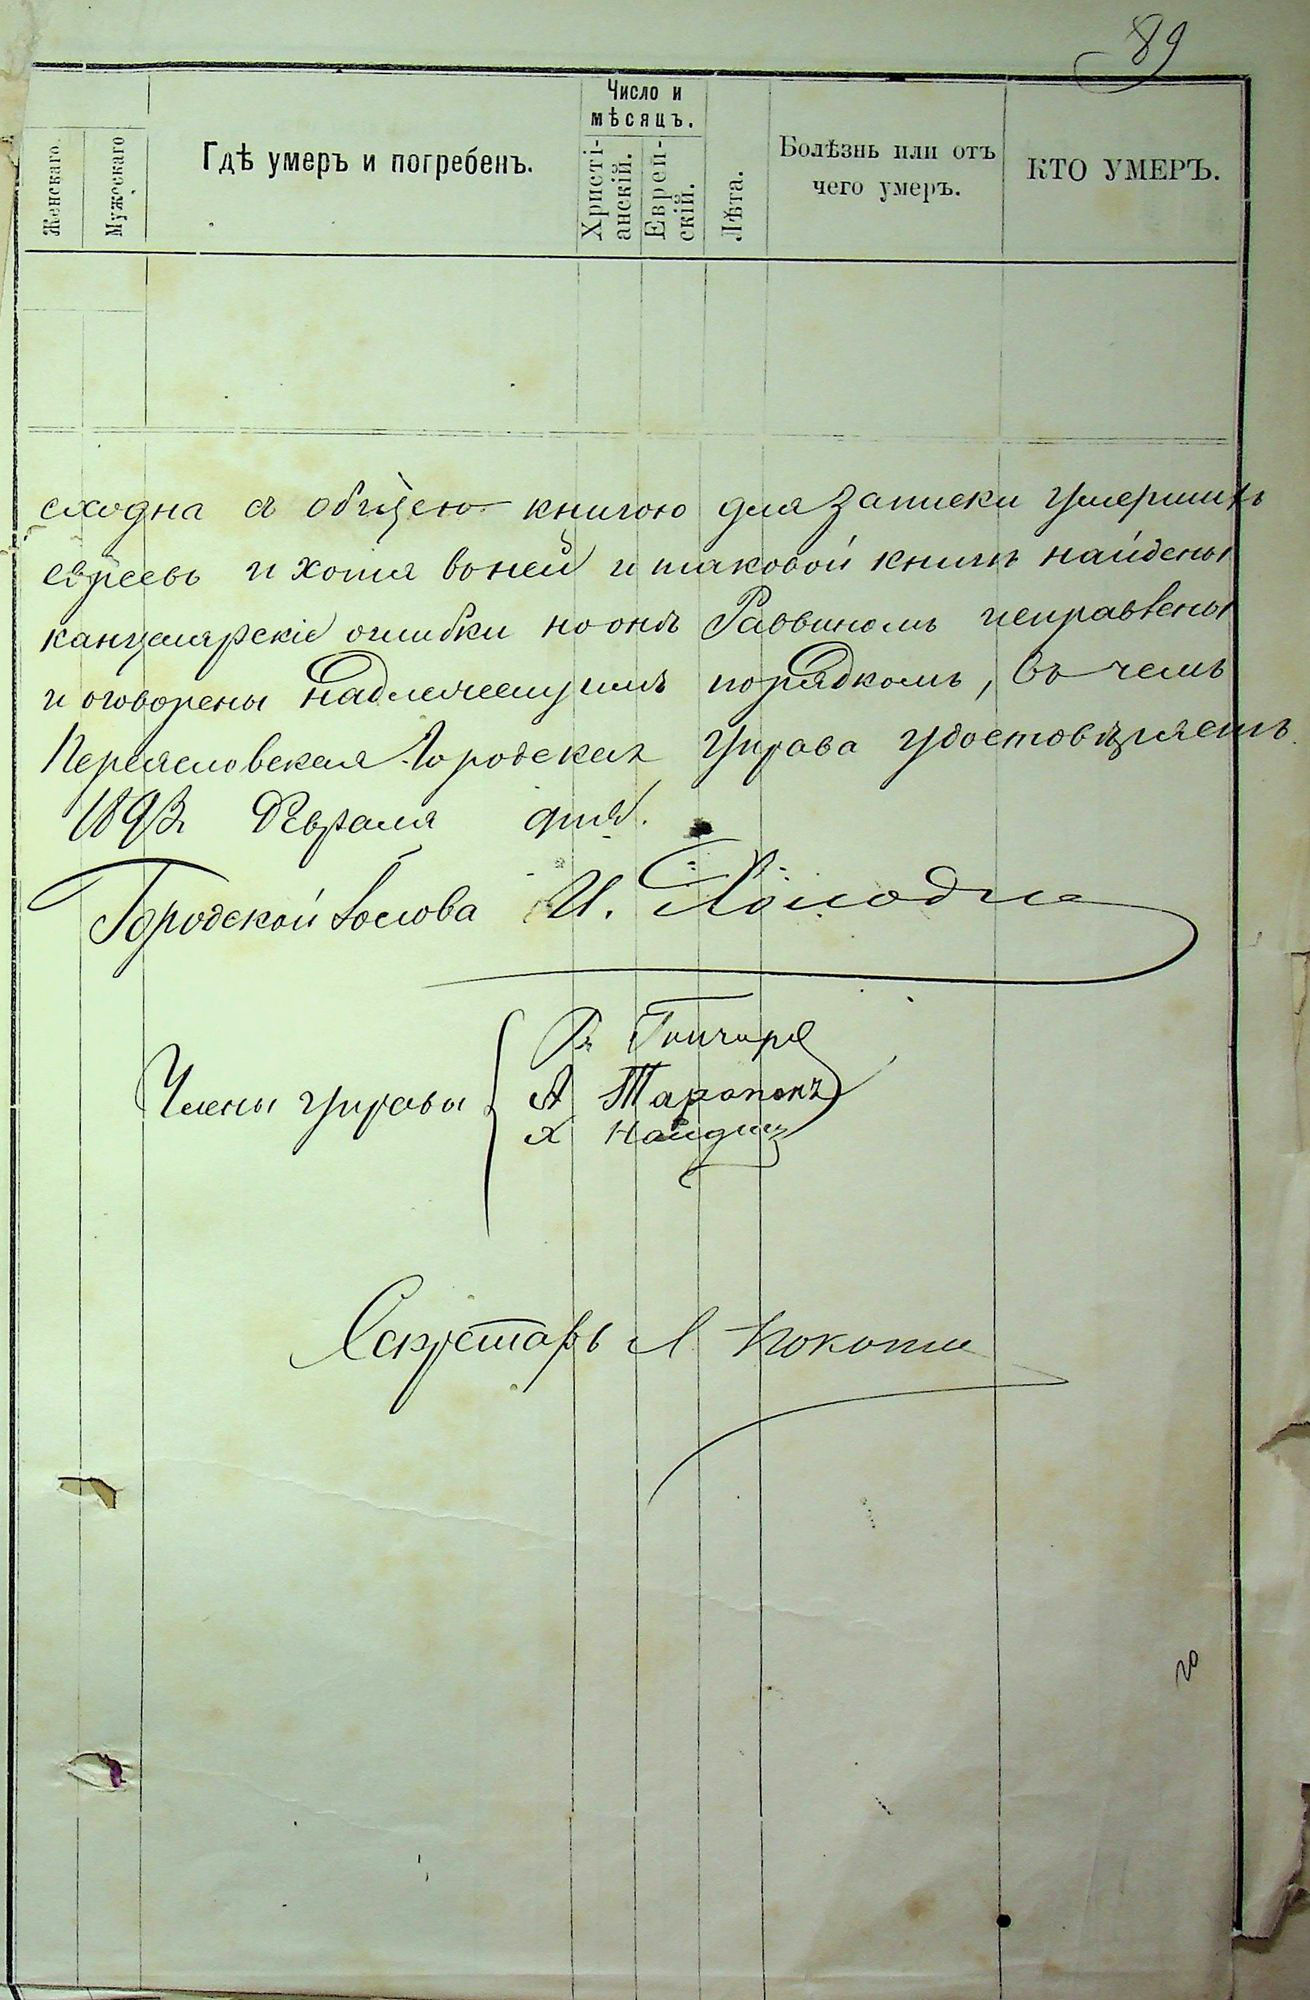 89
Женскаго.
Мужескаго
Гдѣ умеръ и погребенъ.
Число и
мѣсяцъ.
Христі-
анскій.
Еврей-
скій.
Лѣта.
Болѣзнь или отъ
чего умеръ.
КТО УМЕРЪ.
сходна съ общею книгою для записки умершихъ
евреевъ и хотя въ ней и таковой книги найдены
канцелярскіе ошибки но онѣ Раввиномъ исправлены
и оговорены надлежащимъ порядкомъ, въ чемъ
Переяславская Городская Управа удостовѣряетъ
1893 Февраля дня.
Городской Голова И.
Члены Управы Гончаръ
А
Х
Секретарь
20